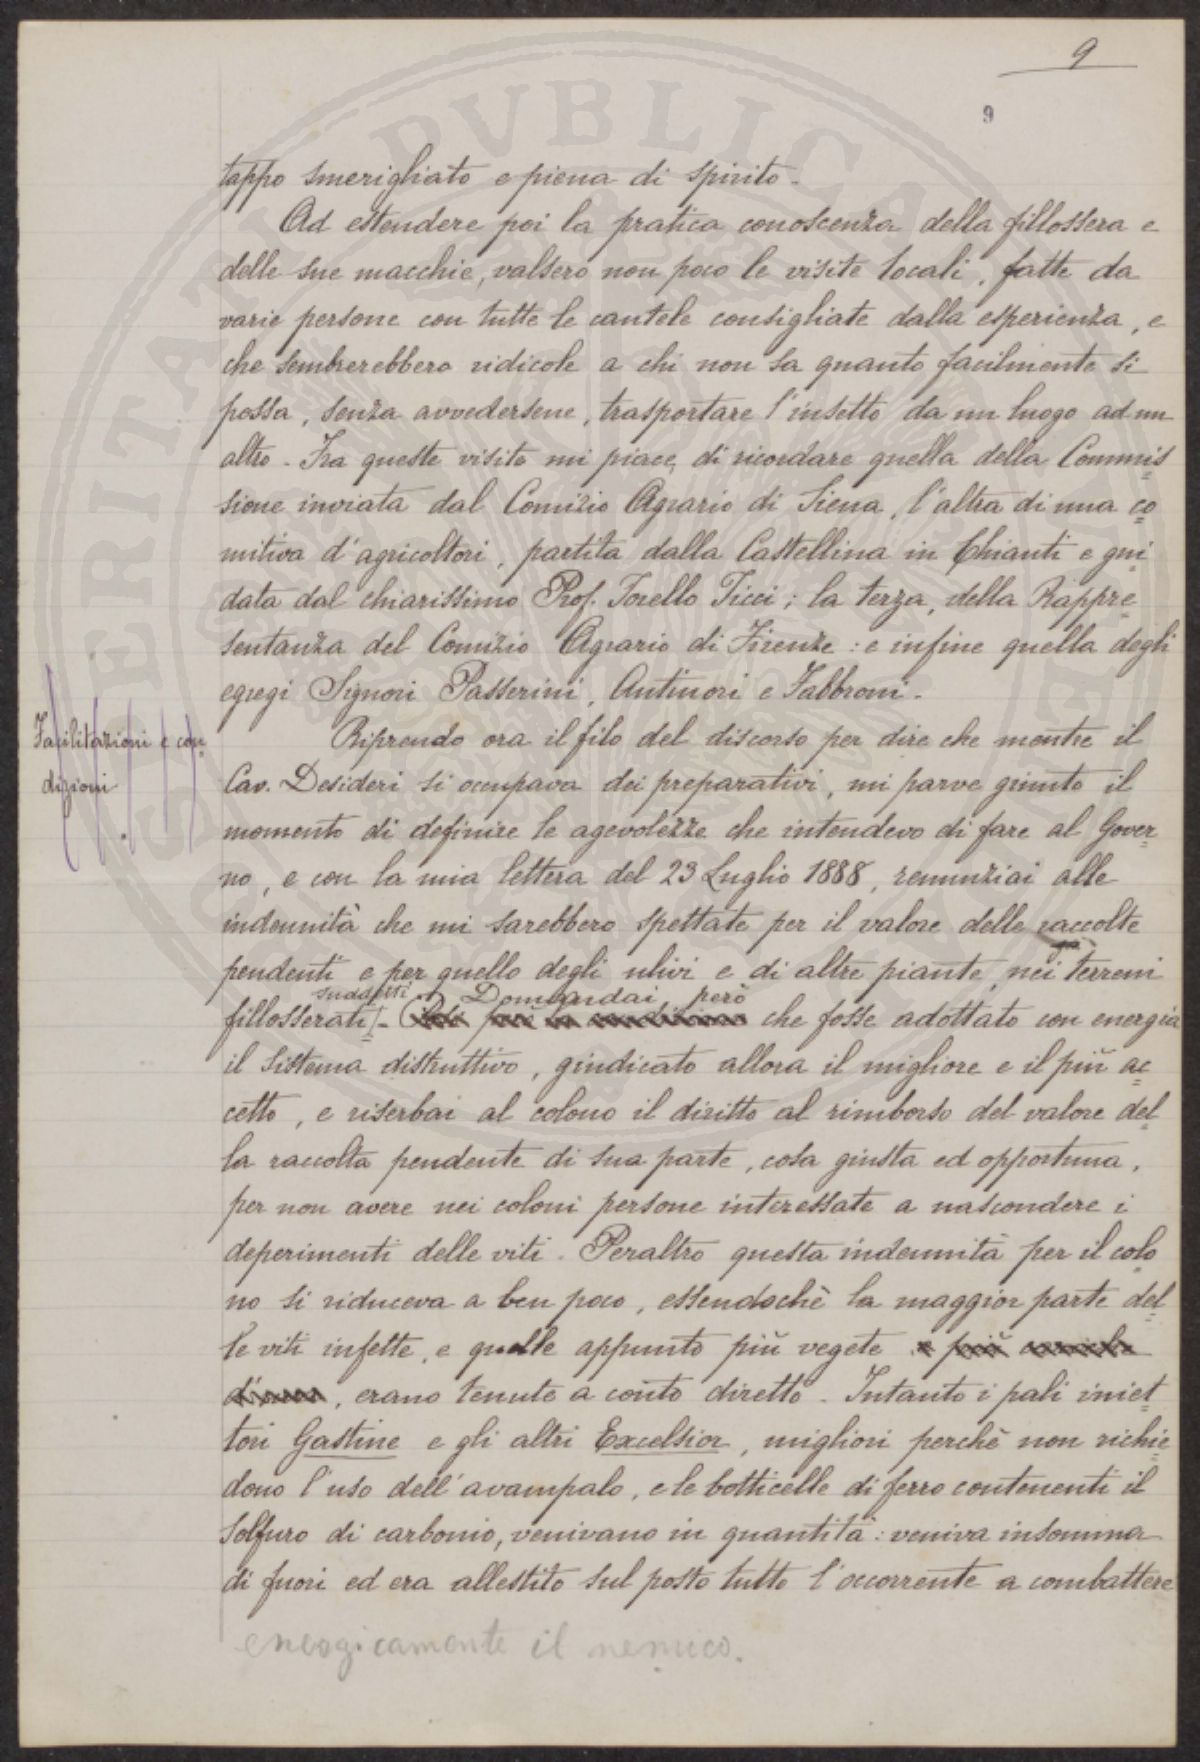 9
9
tappo smerigliato e piena di spirito.
Ad estendere poi la pratica conoscenza della fillossera e
delle sue macchie, valsero non poco le visite locali, fatte da
varie persone con tutte le cautele consigliate dalla esperienza, e
che sembrerebbero ridicole a chi non sa quanto facilmente si
possa, senza avvedersene, trasportare l'insetto da un luogo ad un
altro. Fra queste visite mi piace di ricordare quella della Commis=
sione inviata dal Comizio Agrario di Siena, l'altra di una co=
mitiva d'agricoltori, partita dalla Castellina in Chianti e gui=
data dal chiarissimo Prof. Torello Ticci; la terza, della Rappre=
sentanza del Comizio Agrario di Firenze: e infine quella degli
egregi Signori Passerini, Antinori e Fabbroni.
Facilitazioni e con=
dizioni
Riprendo ora il filo del discorso per dire che mentre il
Cav. Desideri si occupava dei preparativi, mi parve giunto il
momento di definire le agevolezze che intendevo di fare al Gover=
no, e con la mia lettera del 23 Luglio 1888, renunziai alle
indennità che mi sarebbero spettate per il valore delle raccolte
pendenti e per quello degli ulivi e di altre piante, nei terreni
suddetti Domandai, però
fillosserati. che fosse adottato con energia
il sistema distruttivo, giudicato allora il migliore e il più ac=
cetto, e riserbai al colono il diritto al rimborso del valore del=
la raccolta pendente di sua parte, cosa giusta ed opportuna,
per non avere nei coloni persone interessate a nascondere i
deperimenti delle viti. Peraltro questa indennità per il colo=
no si riduceva a ben poco, essendochè la maggior parte del=
le viti infette, e quelle appunto più vegete e più
d'uva, erano tenute a conto diretto. Intanto i pali iniet=
tori Gastine e gli altri Excelsior, migliori perchè non richie=
dono l'uso dell'avampalo, e le botticelle di ferro contenenti il
Solfuro di carbonio, venivano in quantità: veniva insomma
di fuori ed era allestito sul posto tutto l'occorrente a combattere
energicamente il nemico.